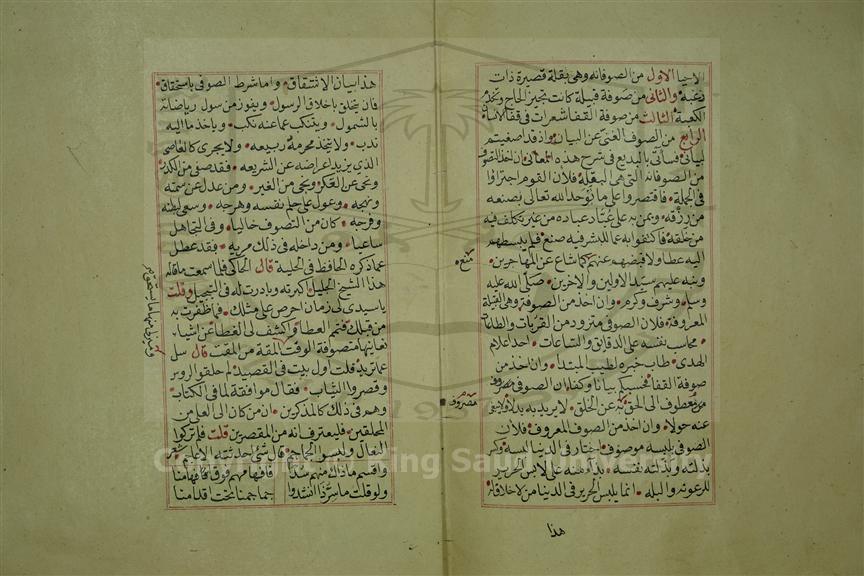 الاحيا الاول من الصوفانه وهى بقلة قصيرة ذات
زغبه والثانى من صوفة قبيلة كانت تجيز الحاج وتخدم
الكعبة الثالث من صوفة القفا شعرات فى قفا الانسان
الرابع من الصوف الغنى عن البيان واذ قد اصغيتم
لبيانى فسآتى بالبديع فى شرح هذه المعانى ان اخذ التصوف
من الصوفانه التى هى البقيله فلان القوم اجتزأوا
فى الجملة فاقتصروا على ما توحد الله تعالى بصنعه
من رزقه ويمن به على عباد عباده من غير تكلف فيه
من خلقه فاكتفوا به عما للبشر فيه صنع فلم يبسطهم
اليه عطا ولا قبضهم عنهم كما شاع عن المهاجرين
ونبه عليهم سيد الاولين والاخرين صلى الله عليه
وسلم وشرف وكرم وان اخذ من الصوفة وهى القبيلة
المعروفة فلان الصوفى متزود من القربات والطاعات
محاسب نفسه على الدقائق والساعات احد اعلام
الهدى طاب خبره لطيب المبتدا وان اخذ من
صوفة القفا فحسبكم بيانا وكفا ان الصوفى مصروف
معطوف الى الحق عن الخلق لا يريد به بدلا ولا يبغى
عنه حولا وان اخذ من الصوف المعروف فلان
الصوفى بلبسه موصوف اختار فى الدنيا لبسه وكسر
بذلته وبذلته نفسه على لابس الحرير
للرعونة والبله انما يلبس الحرير فى الدنيا من لا خلاق له
هذا
منعه
مصروف
هذا بيان الاشتقاق واما شرط الصوفى باستحقاق
فان يتخلق باخلاق الرسول ويفوز من سول رياضاته
بالشمول ويتنكب عما عنه نكب وياخذ ما اليه
ندب ولا يتخذ محرمه ربيعه ولا يجرى كالعاصى
الذى يزيد اعراضه عن الشريعه فقد صفى من الكدر
ونحى عن العكر ونجى من الغير ومن عدل عن سمته
ونهجه وعول على حلم نفسه وهرجه وسعى لبطنه
وفرجه كان من التصوف خاليا وفى التجاهل
ساعيا ومن داخله فى ذلك مريه فقد عطل
عما ذكره الحافظ فى الحلية قال الحاكى فلما سمعت ما قاله
هذا الشيخ الجليل اكبرته وبادرت له فى التبجيل وقلت
يا سيدى فى زمان احرص على مثلك فما ظفرت به
من قبلك فنعم العطا واكشف لى الغطا عن اشياء
نعانيها متصوفة الوقت المقة من المقت قال سل
عما تريد قلت اول بيت فى القصيد لم حلقوا الروس
وقصروا الثياب فقال موافقة لما فى الكتاب
وهم فى ذلك كالمذكرين ان من كان الى العلى من
المحلقين فليعترف انه من المقصرين قلت فلم تركوا
النعال ولبسوا الجماجم قال شى احدثته الاعاجم
واقسم ما ذاك منهم سدا فافهامهم فوق افهامنا
ولو قلت ما سر ذا انشدوا جماجمنا تحت اقدامنا